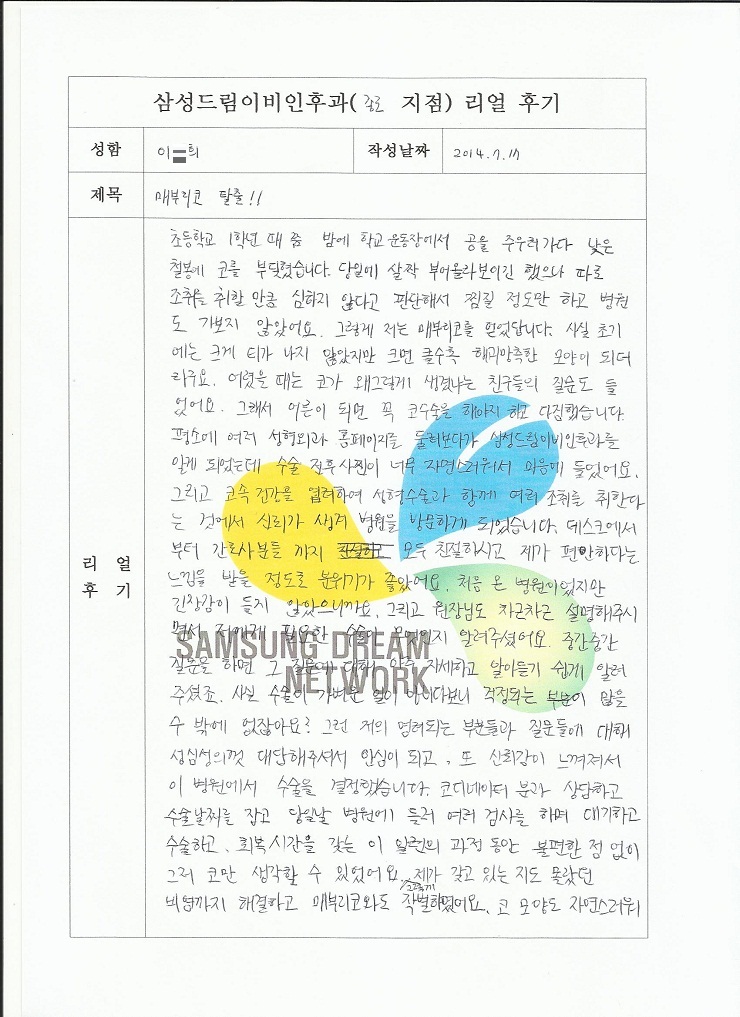 삼성드림이비인후과( 종로 지점) 리얼 후기
성함 이 희 작성날짜 2014.7.17
제목 매부리코 탈출!!
리 얼
후 기
초등학교 1학년 때 쯤 밤에 학교 운동장에서 공을 주우러가다 낮은
철봉에 코를 부딪혔습니다. 당일에 살짝 부어올라보이긴 했으나 따로
조취를 취할 만큼 심하지 않다고 판단해서 찜질 정도만 하고 병원
도 가보지 않았어요. 그렇게 저는 매부리코를 얻었답니다. 사실 초기
에는 크게 티가 나지 않았지만 크면 클수록 해괴망측한 모양이 되더
라구요. 어렸을 때는 코가 왜그렇게 생겼냐는 친구들의 질문도 들
었어요. 그래서 어른이 되면 꼭 코수술을 해야지 하고 다짐했습니다.
평소에 여러 성형외과 홈페이지를 둘러보다가 삼성드림이비인후과를
알게 되었는데 수술 전후사진이 너무 자연스러워서 마음에 들었어요.
그리고 코속 건강을 염려하여 성형수술과 함께 여러 조취를 취한다
는 것에서 신뢰가 생겨 병원을 방문하게 되었습니다. 데스크에서
부터 간호사분들 까지 친절하고 모두 친절하시고 제가 편안하다는
느낌을 받을 정도로 분위기가 좋았어요. 처음 온 병원이었지만
긴장감이 들지 않았으니까요. 그리고 원장님도 차근차근 설명해주시
면서 저에게 필요한 수술이 무엇인지 알려주셨어요. 중간중간
질문을 하면 그 질문에 대해 아주 자세하고 알아듣기 쉽게 알려
주셨죠. 사실 수술이 가벼운 일이 아니다보니 걱정되는 부분이 많을
수 밖에 없잖아요? 그런 저의 염려되는 부분들과 질문들에 대해
성심성의껏 대답해주셔서 안심이 되고, 또 신뢰감이 느껴져서
이 병원에서 수술을 결정했습니다. 코디네이터 분과 상담하고
수술날짜를 잡고 당일날 병원에 들러 여러 검사를 하며 대기하고
수술하고, 회복시간을 갖는 이 일련의 과정 동안 불편한 점 없이
그저 코만 생각할 수 있었어요. 제가 갖고 있는 지도 몰랐던
비염까지 해결하고 매부리코와도 그렇게 작별하였어요. 코 모양도 자연스러워
SAMSUNG DREAM
NETWORK